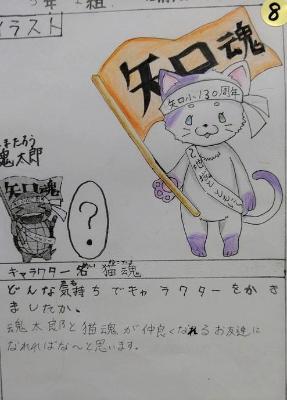 8
イラスト
矢口魂
矢口小130周年
たろう
魂太郎
矢口魂
?
キャラクター名 猫魂
どんな気持ちでキャラクターをかき
ましたか。
魂太郎と猫魂が仲良くなれるお友達に
なれればなぁと思います。